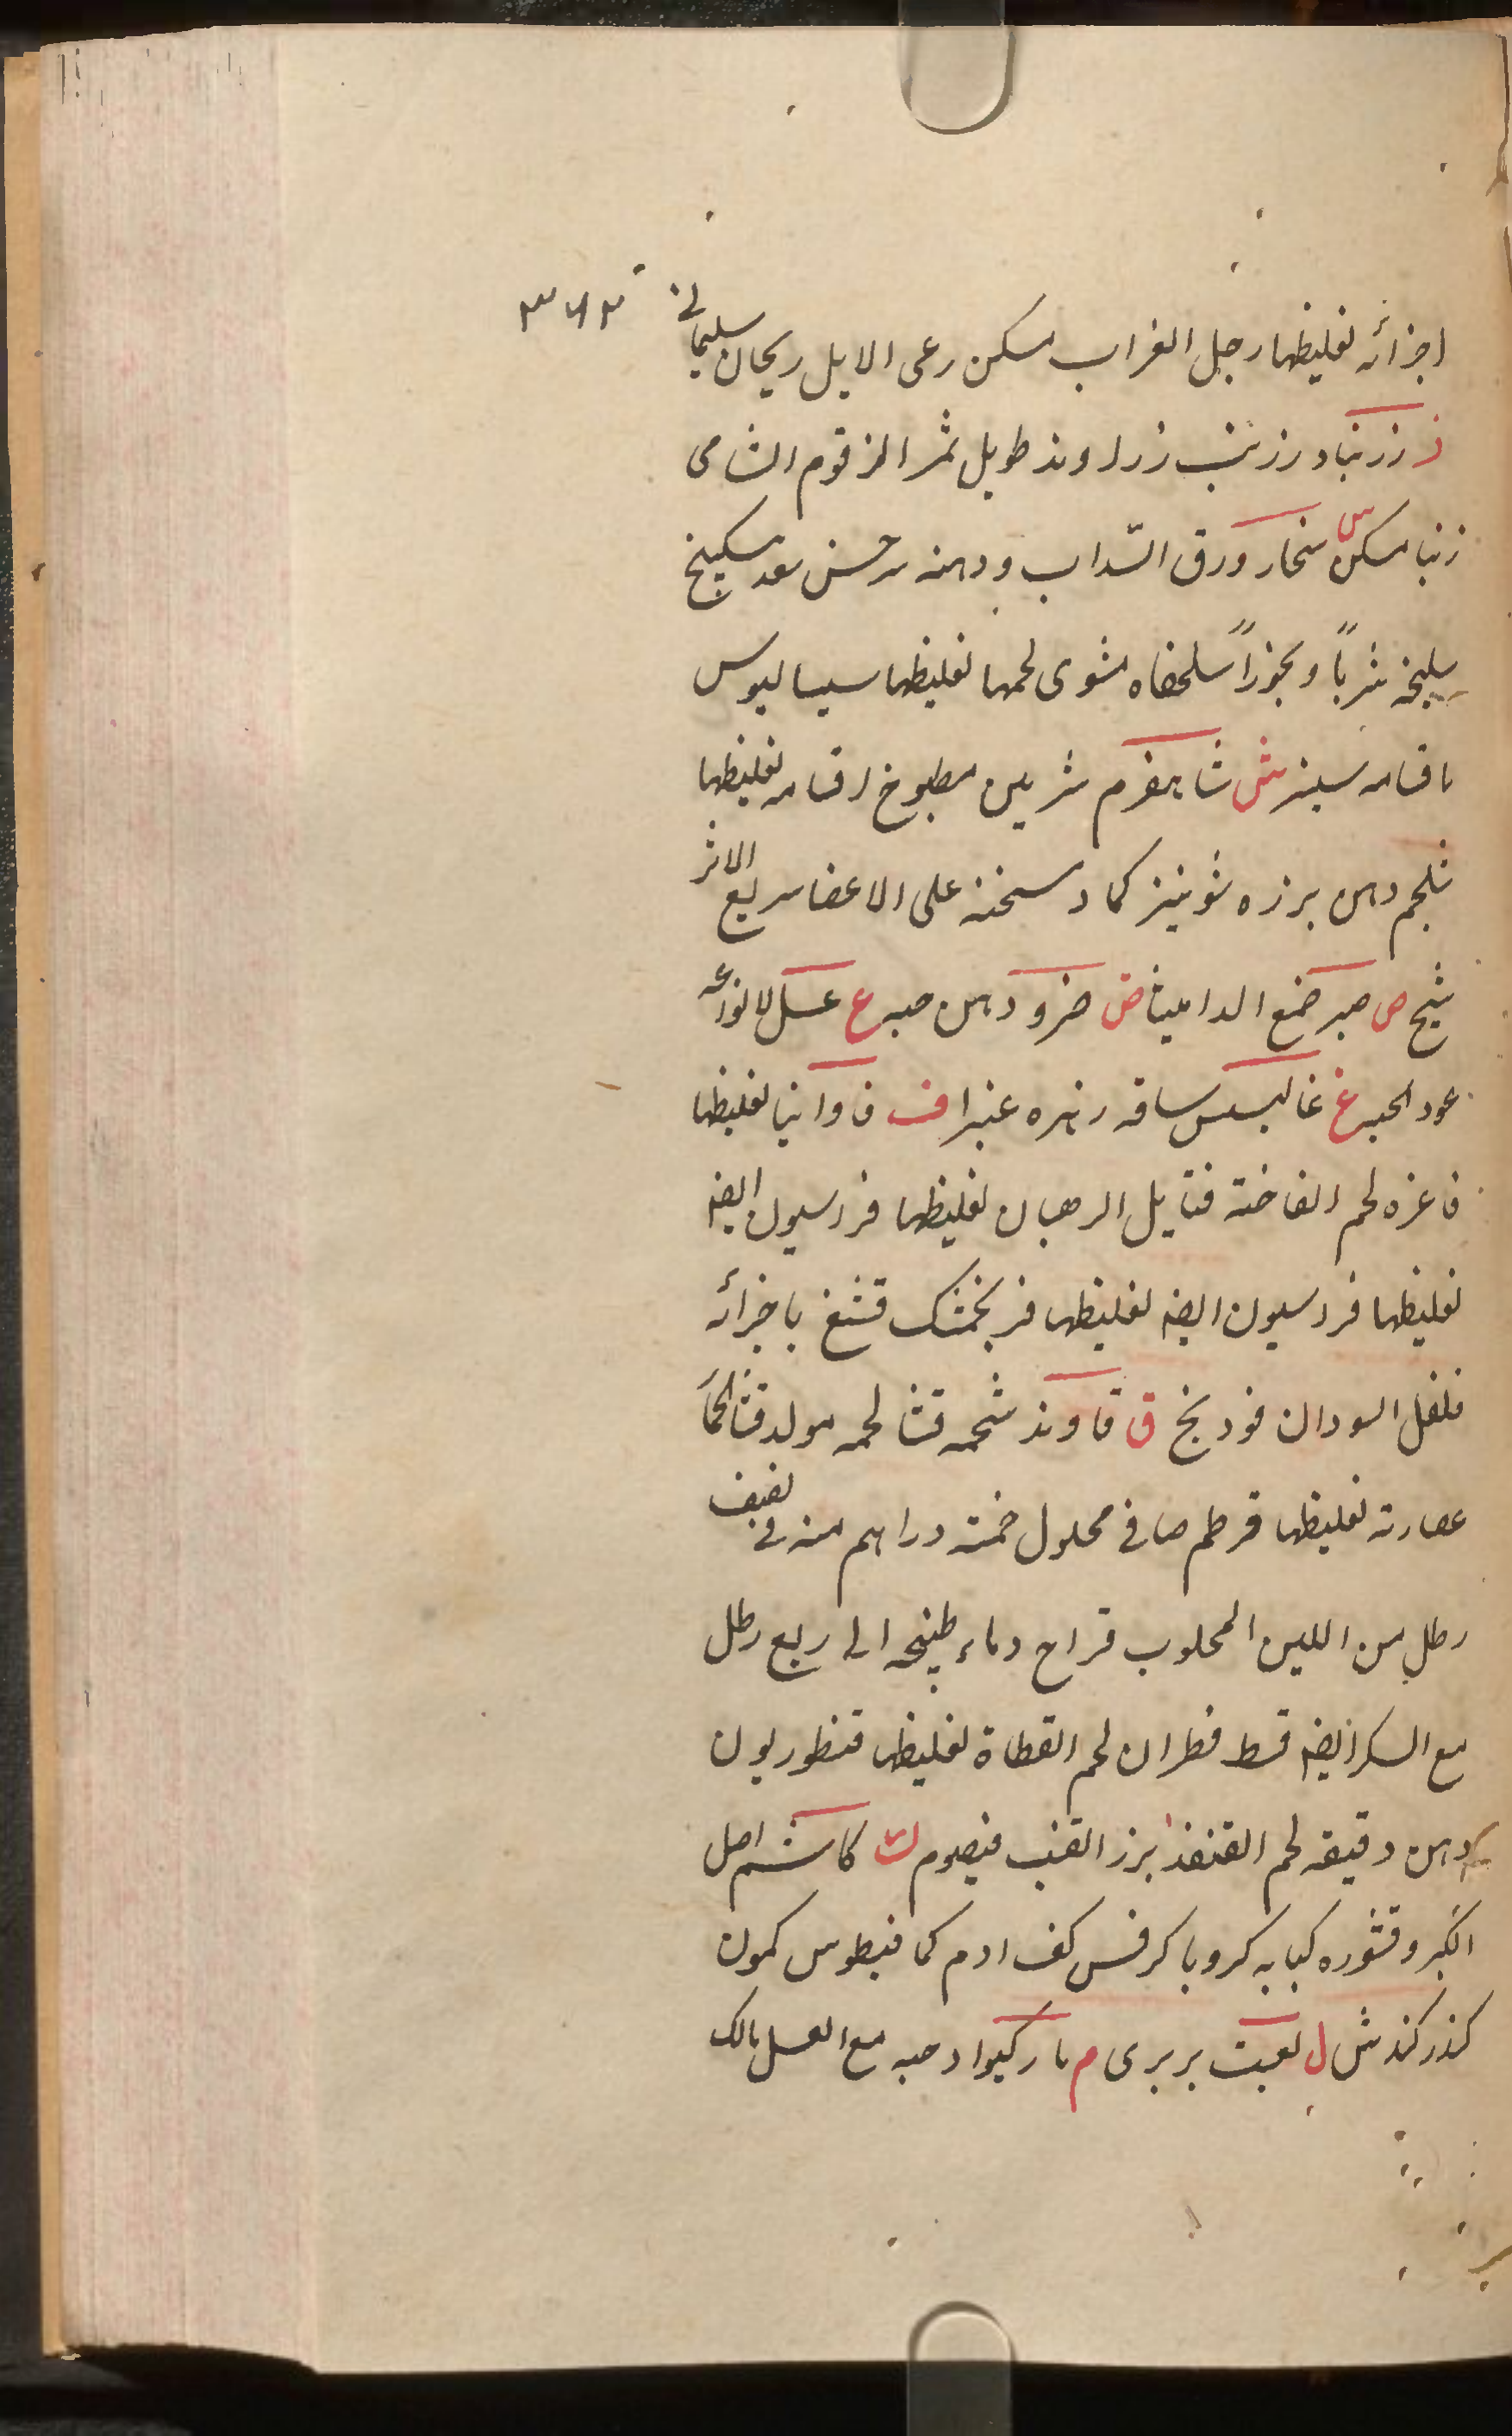 اجزائه لغليظها رجل الغراب مسكن رعى الابل ريحان سليمانى
ز زرنباد زرنب زراوند طويل ثمر الزقوم الشامى
زنبا مسكن س سنجار ورق السداب ودهنه سرخس سعد سكبينج
سليخه شرباً وبخوراً سلحفاه مشوى لحمها لغليظها سيساليوس
باقسامه سبنر ش شاهفرم شربين مطبوخ اقسامه لغليظها
شلجم دهن برزه شونيز كماد سخنه على الاعضا سريع الاثر
شيح ص صبر ضمغ الداميثا ض ضرو دهن حبه ع عسل لانواعه
عود الحيه غ غاليسس ساقه زهره عنبرا ف فاوانيا لغليظها
فاغره لحم الفاخته فتايل الرهبان لغليظها فراسيون ايضه
لغليظها فراسيون ايضه لغليظها فرنجمشك قشغ باجزائه
فلفل السودان فودنج ق قاوند شحمه قثا لحمه مولد قثا الحمار
عصارته لغليظها قرطم صافى محلول خمسة دراهم منه فى نصف
رطل من اللبن المحلوب قراح وماء طبيخه الى ربع رطل
مع السكر ايضه قسط قطران لحم القطاة لغليظها قنطوريون
دهن دقيقه لحم القنفذ بزر القنب قيصوم ك كاشم اصل
الكبر وقشوره كبابه كرويا كرفس كف ادم كمافيطوس كمون
كندر كندش ل لعبت بربرى م ماركيوا وحبه مع العسل مالك